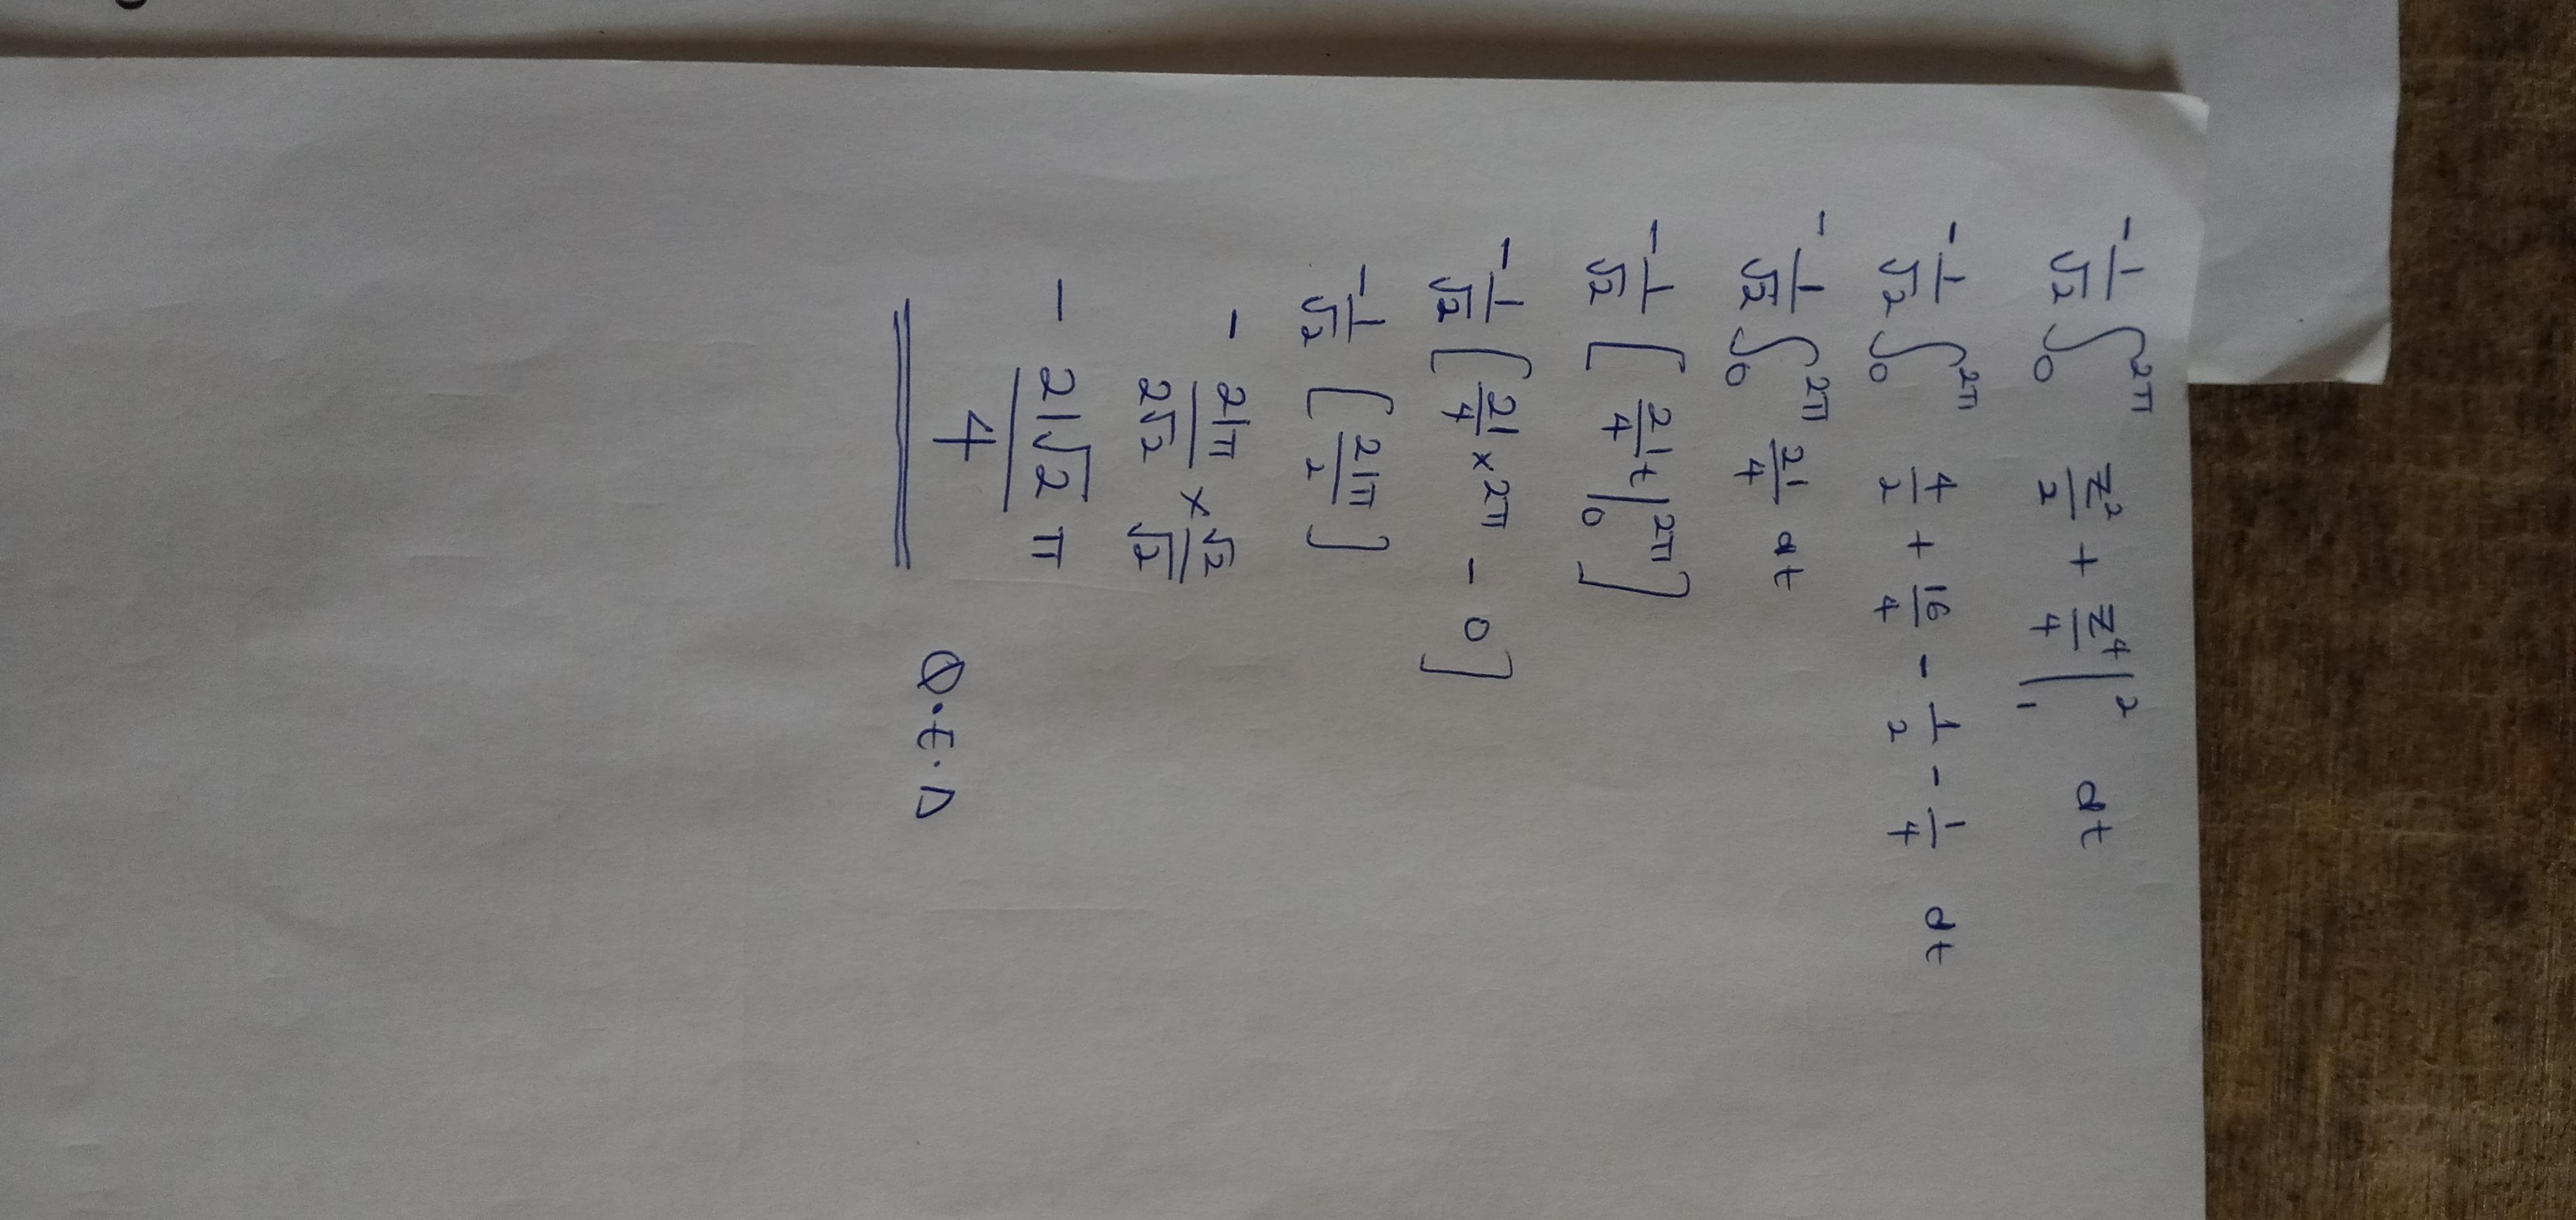 -1/√2 ∫₀^2π z²/2 + z⁴/4 |₁² dt
-1/√2 ∫₀^2π 4/2 + 16/4 - 1/2 - 1/4 dt
-1/√2 ∫₀^2π 21/4 dt
-1/√2 [21/4 t |₀^2π]
-1/√2 [21/4 × 2π - 0]
-1/√2 [21π/2]
- 21π/2√2 × √2/√2
- 21√2/4 π
Q.E.D